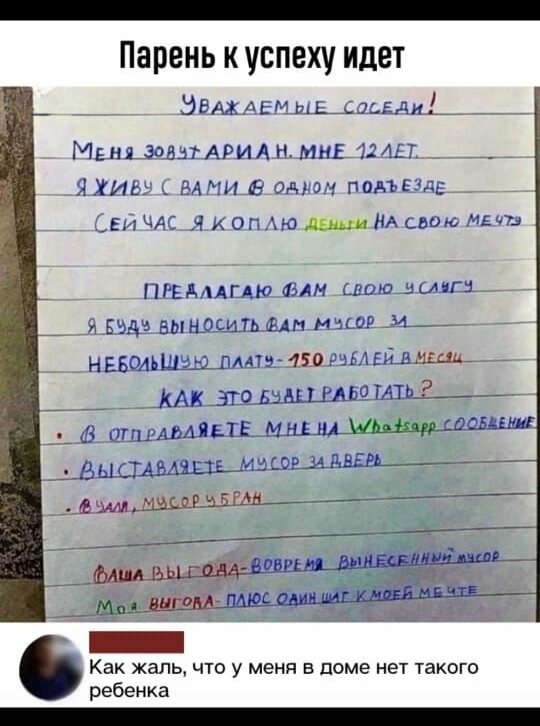 Парень к успеху идет
УВАЖАЕМЫЕ СОСЕДИ!
МЕНЯ ЗОВУТ АРИАН. МНЕ 12 ЛЕТ.
Я ЖИВУ С ВАМИ В ОДНОМ ПОДЪЕЗДЕ
СЕЙЧАС Я КОПЛЮ ДЕНЬГИ НА СВОЮ МЕЧТУ
ПРЕДЛАГАЮ ВАМ СВОЮ УСЛУГУ
Я БУДУ ВЫНОСИТЬ ВАМ МУСОР ЗА
НЕБОЛЬШУЮ ПЛАТУ - 150 РУБЛЕЙ В МЕСЯЦ
КАК ЭТО БУДЕТ РАБОТАТЬ?
• В ОТПРАВЛЯЕТЕ МНЕ НА WhatsApp СООБЩЕНИЕ
• ВЫСТАВЛЯЕТЕ МУСОР ЗА ДВЕРЬ
• ВУАЛЯ, МУСОР УБРАН
ВАША ВЫГОДА - ВОВРЕМЯ ВЫНЕСЕННЫЙ МУСОР
МОЯ ВЫГОДА - ПЛЮС ОДИН ШАГ К МОЕЙ МЕЧТЕ
Как жаль, что у меня в доме нет такого
ребенка